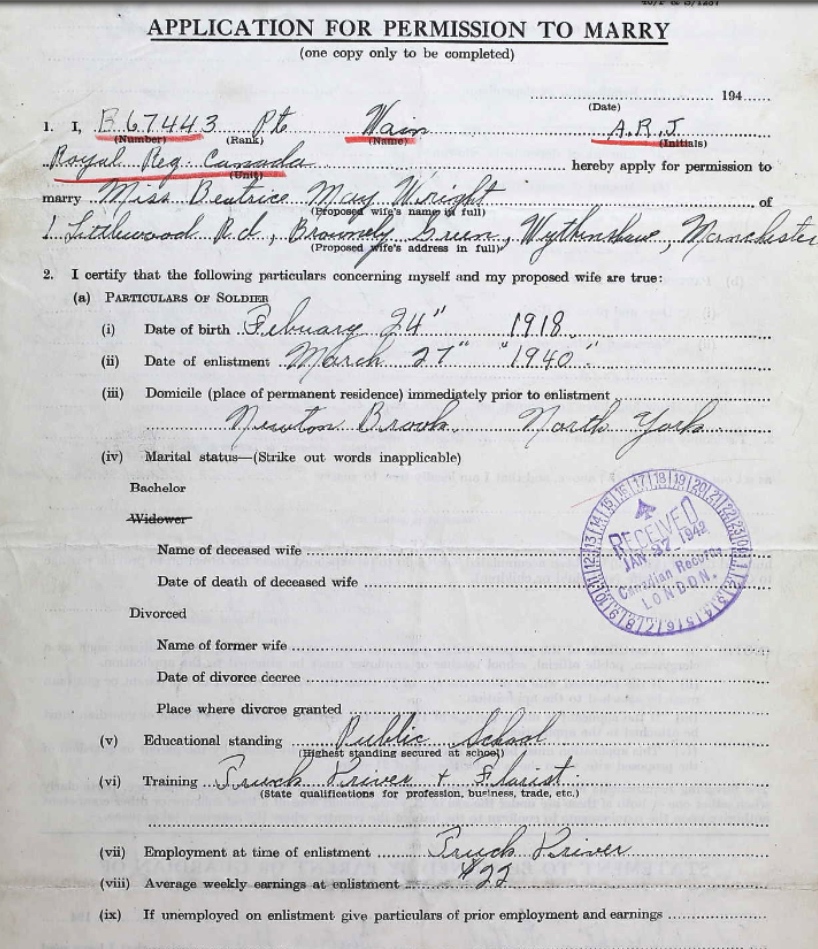 APPLICATION FOR PERMISSION TO MARRY
(one copy only to be completed)
194
(Date)
1. I, B 67443 Pte Wain A.R.J.
(Number) (Rank) (Name) (Initials)
Royal Reg. Canada hereby apply for permission to
(Unit)
marry Miss Beatrice May Wright of
(Proposed wife's name in full)
1 Littlewood Rd, Brownely Green, Wythinshawe, Manchester
(Proposed wife's address in full)
2. I certify that the following particulars concerning myself and my proposed wife are true:
(a) PARTICULARS OF SOLDIER
(i) Date of birth Febuary 24" 1918
(ii) Date of enlistment March 27" "1940"
(iii) Domicile (place of permanent residence) immediately prior to enlistment
Newton Brook North York
(iv) Marital status—(Strike out words inapplicable)
Bachelor
Widower
Name of deceased wife
Date of death of deceased wife
Divorced
Name of former wife
Date of divorce decree
Place where divorce granted
RECEIVED
JAN 27 1942
Canadian Records
LONDON.
(v) Educational standing Public School
(Highest standing secured at school)
(vi) Training Truck Driver + Florist.
(State qualifications for profession, business, trade, etc.)
(vii) Employment at time of enlistment Truck Driver
(viii) Average weekly earnings at enlistment $22
(ix) If unemployed on enlistment give particulars of prior employment and earnings